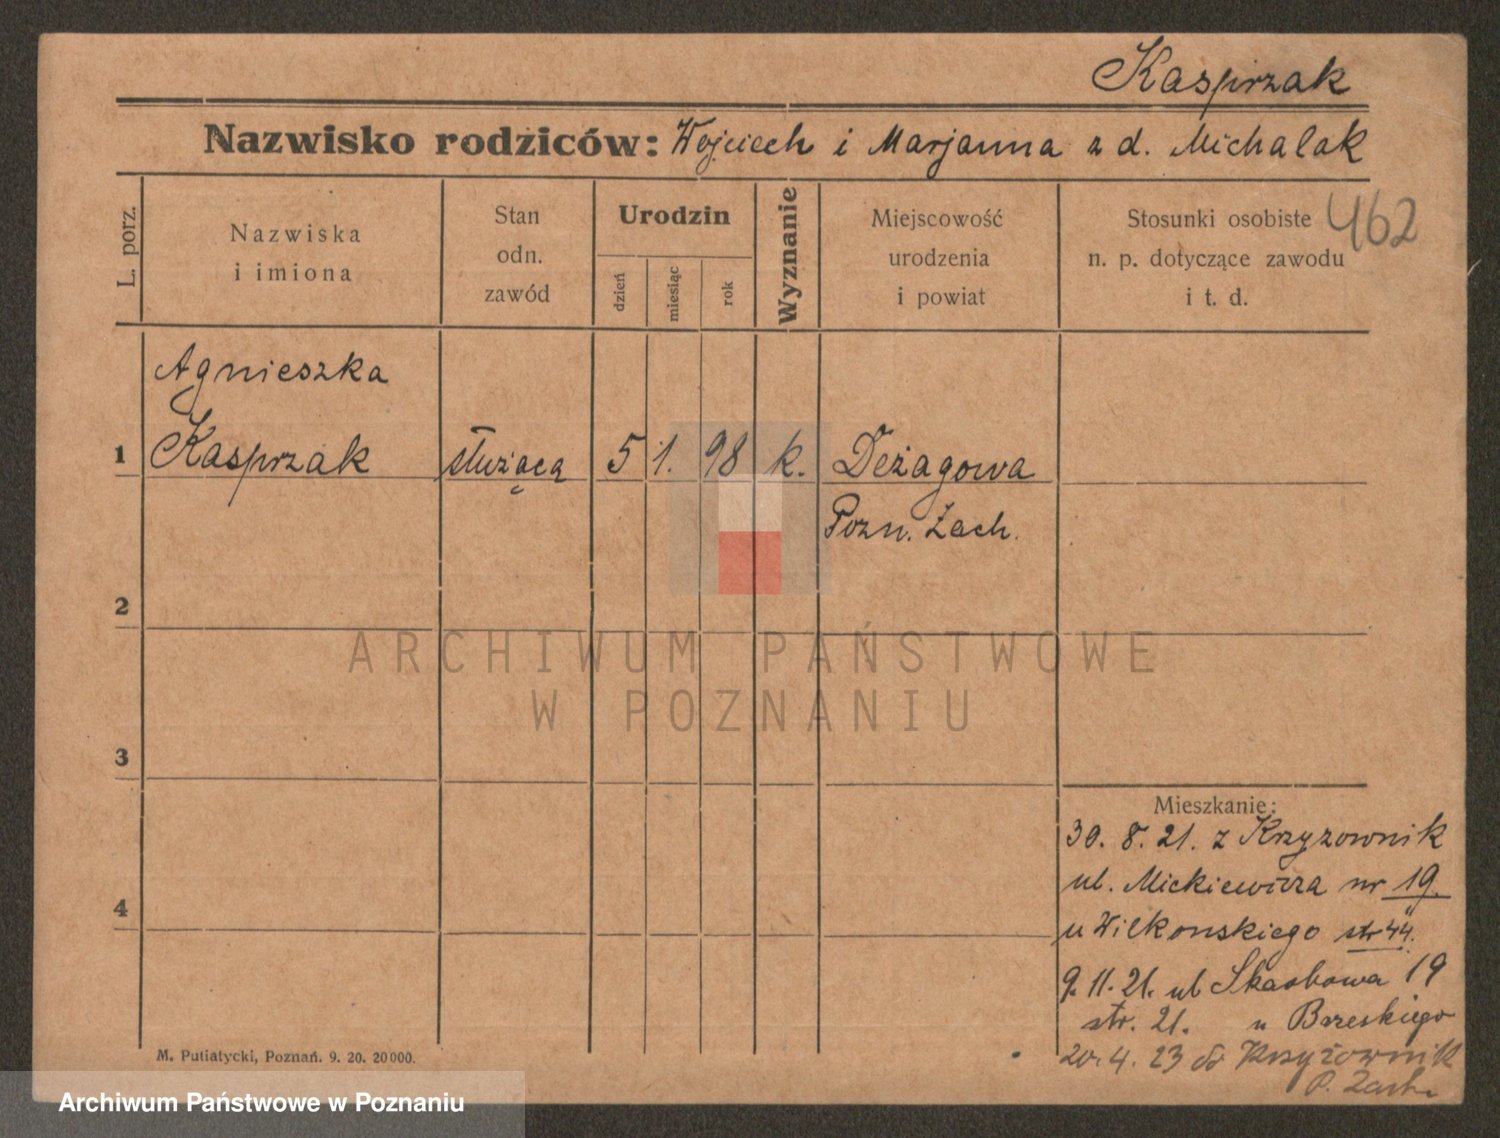 Kasprzak
Nazwisko rodziców: Wojciech i Marjanna z d. Michalak
L. porz.
Nazwiska
i imiona
Stan
odn.
zawód
Urodzin
dzień
miesiąc
rok
Wyznanie
Miejscowość
urodzenia
i powiat
Stosunki osobiste
n. p. dotyczące zawodu
i t. d.
462
Agnieszka
1 Kasprzak służąca 5 1. 98 k. Deżagowa
Pozn. Zach.
2
3
4
Mieszkanie:
30. 8. 21. z Krzyzownik
ul. Mickiewicza nr 19.
u Wilkonskiego str 44.
9. 11. 21. ul Skarbowa 19
str. 21. u Brzeskiego
20. 4. 23 do Krzyżownik
P. Zach.
M. Putiatycki, Poznań. 9. 20. 20000.
ARCHIWUM PAŃSTWOWE
W POZNANIU
Archiwum Państwowe w Poznaniu